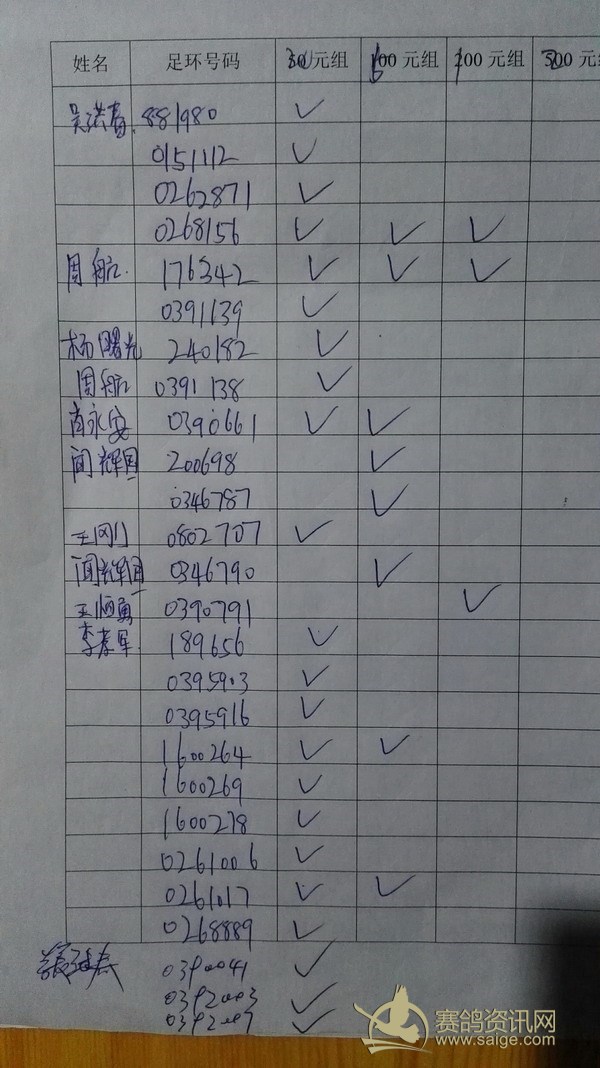 姓名 足环号码 30元组 100元组 200元组 500元
吴洪春 881980 ✓
0151112 ✓
0262871 ✓
0268156 ✓ ✓ ✓
周航 176342 ✓ ✓ ✓
0391139 ✓
杨曙光 240182 ✓
周航 0391138 ✓
肖永安 0390661 ✓ ✓
闻辉国 200698 ✓
0346787 ✓
王刚 0802707 ✓
闻辉国 0346790 ✓
王恒勇 0390791 ✓
李春军 189656 ✓
0395903 ✓
0395916 ✓
1600264 ✓ ✓
1600269 ✓
1600278 ✓
0261006 ✓
0261017 ✓ ✓
0268889 ✓
0390041 ✓
0392003 ✓
0392007 ✓
赛鸽资讯网
www.saige.com